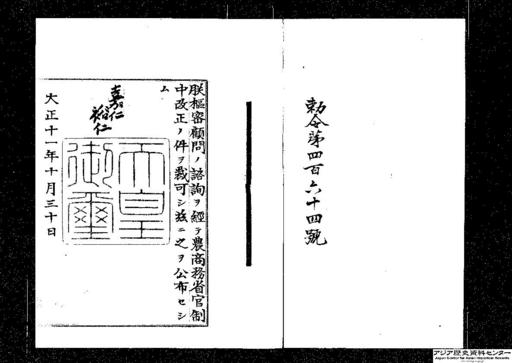 勅令第四百六十四號
朕樞密顧問ノ諮詢ヲ經テ農商務省官制
中改正ノ件ヲ裁可シ茲ニ之ヲ公布セシ
ム
嘉仁
裕仁
天皇
御璽
大正十一年十月三十日
アジア歴史資料センター
Japan Center for Asian Historical Records